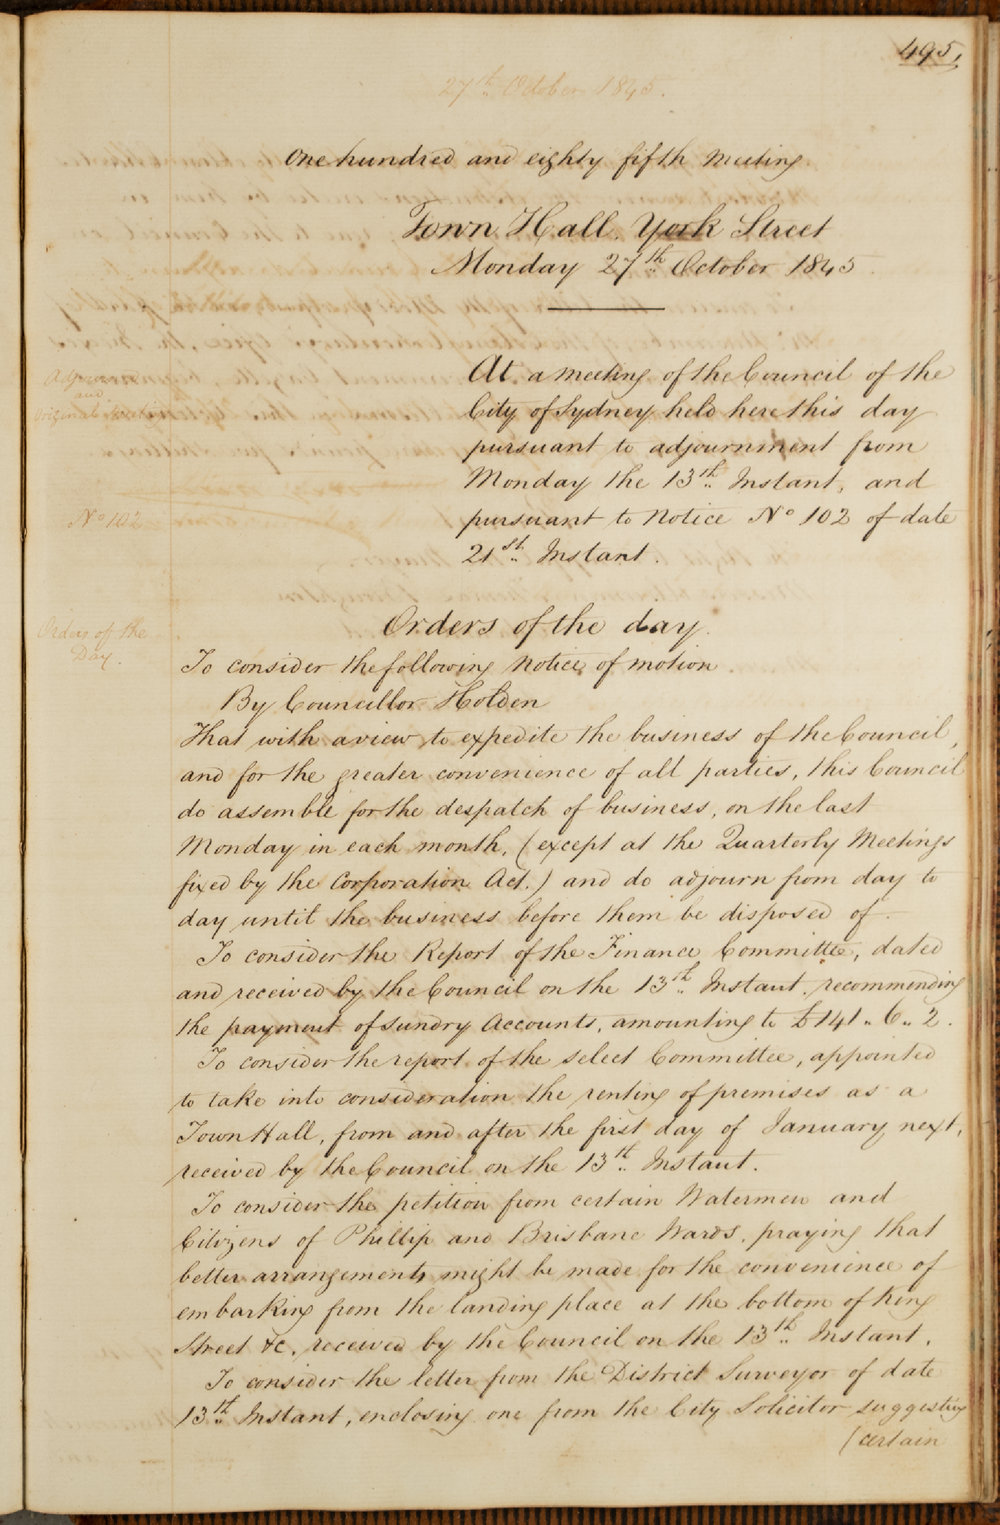 495,
27th October 1845.
One hundred and eighty fifth Meeting
Town Hall. York Street
Monday 27th October 1845
Adjourned
and
Original Meeting
At a meeting of the Council of the
City of Sydney held here this day
pursuant to adjournment from
Monday the 13th Instant, and
No 102
pursuant to Notice No 102 of date
21st Instant.
Orders of the
Day.
Orders of the day.
To consider the following Notice of motion
By Councillor Holden
That with a view to expedite the business of the Council,
and for the greater convenience of all parties, this Council
do assemble for the despatch of business, on the last
Monday in each month, (except at the Quarterly Meetings
fixed by the Corporation Act.) and do adjourn from day to
day until the business before them be disposed of.
To consider the Report of the Finance Committee, dated
and received by the Council on the 13th Instant. recommending
the payment of sundry Accounts, amounting to £141..6..2.
To consider the report of the select Committee, appointed
to take into consideration the renting of premises as a
Town Hall, from and after the first day of January next,
received by the Council on the 13th Instant.
To consider the petition from certain Watermen and
Citizens of Phillip and Brisbane Wards, praying that
better arrangements might be made for the convenience of
embarking from the landing place at the bottom of King
Street &c. received by the Council on the 13th Instant.
To consider the letter from the District Surveyor of date
13th Instant, enclosing one from the City Solicitor suggesting
(certain